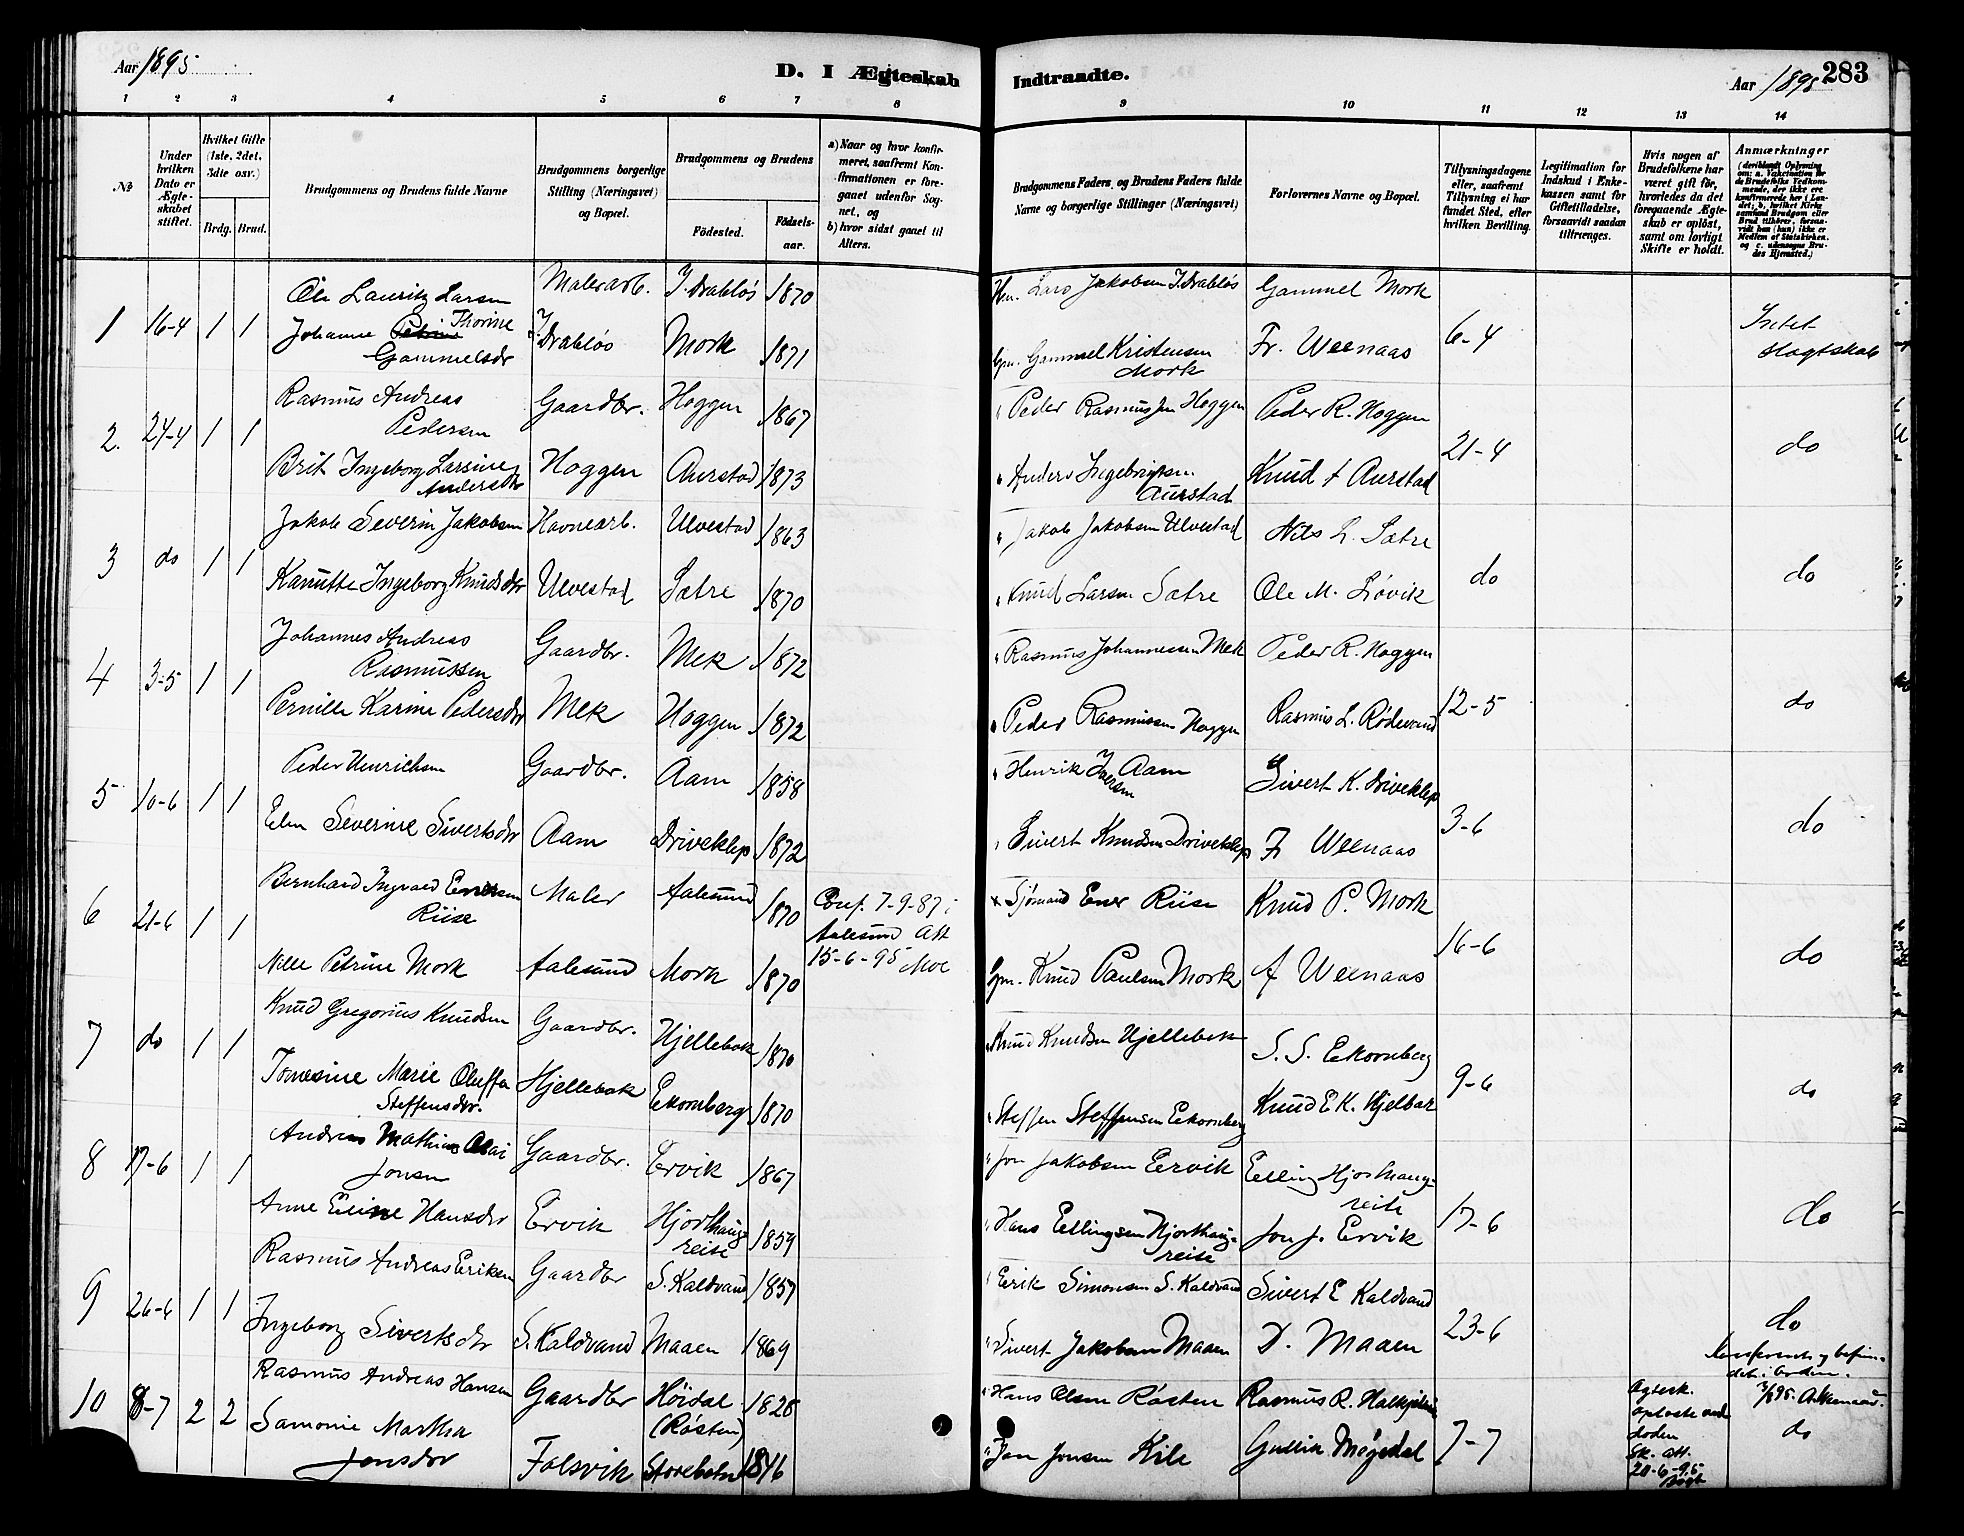 Aar 1895
D. I Ægteskab
Indtraadte.
Aar 1895
283
1 2 3 4 5 6 7 8 9 10 11 12 13 14
№
Under hvilken Dato er Ægteskabet stiftet.
Hvilket Gifte (1ste, 2det, 3die osv.)
Brdg. Brud.
Brudgommens og Brudens fulde Navne
Brudgommens borgerlige Stilling (Næringsvei) og Bopæl.
Brudgommens og Brudens
Fødested.
Fødselsaar.
a) Naar og hvor konfirmeret, saafremt Konfirmationen er foregaaet udenfor Sognet, og
b) hvor sidst gaaet til Alters.
Brudgommens Faders, og Brudens Faders fulde Navne og borgerlige Stillinger (Næringsvei)
Forlovernes Navne og Bopæl.
Tillysningsdagene eller, saafremt Tillysning ei har fundet Sted, efter hvilken Bevilling.
Legitimation for Indskud i Enkekassen samt for Giftetilladelse, forsaavidt saadan tiltrænges.
Hvis nogen af Brudefolkene har været gift før, hvorledes da det foregaaende Ægteskab er opløst, samt om lovligt Skifte er holdt.
Anmærkninger
(deriblandt Oplysning om: a. Vaksination for de Brudefolks Vedkommende, der ikke ere konfirmerede her i Landet; b. hvilket Kirkesamfund Brudgom eller Brud tilhører, forsaavidt han (hun) ikke er Medlem af Statskirken. og c. udensogns Brudes Hjemsted.)
1 16-4 1 1 Ole Lauritz Larsen Malerarb. Y. Drabløs 1870 Lars Jakobsen Y. Drabløs Gammel Mork
Johanne Petrine Thorine Gammelsdr Y. Drabløs Mork 1871 Gm. Gammel Kristensen Mork Fr. Weenaas 6-4 Intet Slægtskab
2. 24-4 1 1 Rasmus Andreas Pedersen Gaardbr. Hoggen 1867 Peder Rasmussen Hoggen Peder R. Hoggen
Brit Ingeborg Larsine Andersdr Hoggen Aurstad 1873 Anders Ingebrigtsen Aurstad Knud A Aurstad 21-4 do
3 do 1 1 Jakob Severin Jakobsen Havnearb. Ulvestad 1863 Jakob Jakobsen Ulvestad Nils L. Sætre
Kanutte Ingeborg Knudsdr Ulvestad Sætre 1870 Knud Larsen Sætre Ole M. Løvik do do
4 3-5 1 1 Johannes Andreas Rasmussen Gaardbr. Mek 1872 Rasmus Johannessen Mek Peder R. Hoggen
Pernille Karine Pedersdr Mek Hoggen 1872 Peder Rasmussen Hoggen Rasmus L. Rødevand 12-5 do
5 10-6 1 1 Peder Henriksen Gaardbr. Aam 1858 Henrik Iversen Aam Sivert K. Driveklep
Elen Severine Sivertsdr Aam Driveklep 1872 Sivert Knudsen Driveklep Fr Weenaas 3-6 do
6 21-6 1 1 Bernhard Ingvald Enersen Riise Maler Aalesund 1870 Conf. 7-9-87 i Aalesund Att 15-6-95 Moe Sjømand Ener Riise Knud P. Mork
Nille Petrine Mork Aalesund Mork 1870 Gm. Knud Paulsen Mork A Weenaas 16-6 do
7 do 1 1 Knud Gregorius Knudsen Gaardbr. Hjellebak 1870 Knud Knudsen Hjellebak S. S. Eekornberg
Tomesine Marie Oluffa Steffensdr. Hjellebak Ekornberg 1870 Steffen Steffensen Eekornberg Knud E K. Hjelbak 9-6 do
8 17-6 1 1 Andreas Mathias Jonsen Gaardbr. Ervik 1867 Jon Jakobsen Eervik Elling Hjorthaugreite
Anne Eline Hansdr Ervik Hjorthaugreite 1859 Hans Ellingsen Hjorthaugreite Jon J. Ervik 17-6 do
9 26-6 1 1 Rasmus Andreas Eriksen Gaardbr S. Kaldvand 1857 Erik Simonsen S. Kaldvand Sivert E Kaldvand
Ingeborg Sivertsdr S. Kaldvand Maaen 1869 Sivert Jakobsen Maaen D. Maaen 23-6 do
10 8-7 2 2 Rasmus Andreas Hansen Gaardbr Høidal (Røsten) 1828 Hans Olsen Røsten Rasmus R.
Samonie Martha Jonsdr Falsvik Storebotn 1846 Jon Jonsen Kile Møgedal 7-7 Ægtesk. opløste ved døden Sk. Att. 20-6-95 do